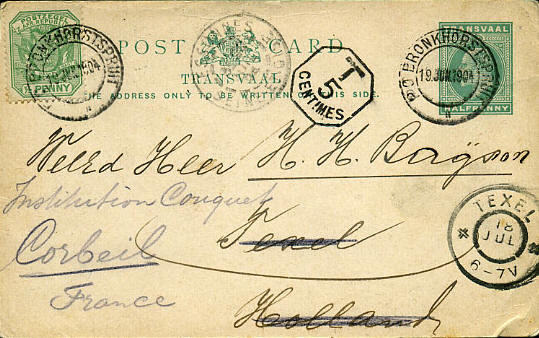 POSTZEGEL
Z. AFR. REPUBLIEK
½ PENNY
BRONKHORSTSPRUIT
19 JUN. 1904
POST CARD
TRANSVAAL
THE ADDRESS ONLY TO BE WRITTEN ON THIS SIDE.
T
5
CENTIMES
TRANSVAAL
HALFPENNY
BRONKHORSTSPRUIT
19 JUN. 1904
Weled Heer H. H. Bagson
Institution Couquet
Texel
Corbeil
France
Holland
TEXEL
18
JUL
6-7V